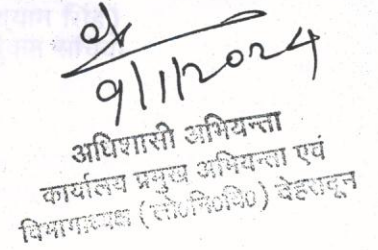 9/1/2024
अधिशासी अभियन्ता
कार्यालय प्रमुख अभियन्ता एवं
विभागाध्यक्ष (लो०नि०वि०) देहरादून